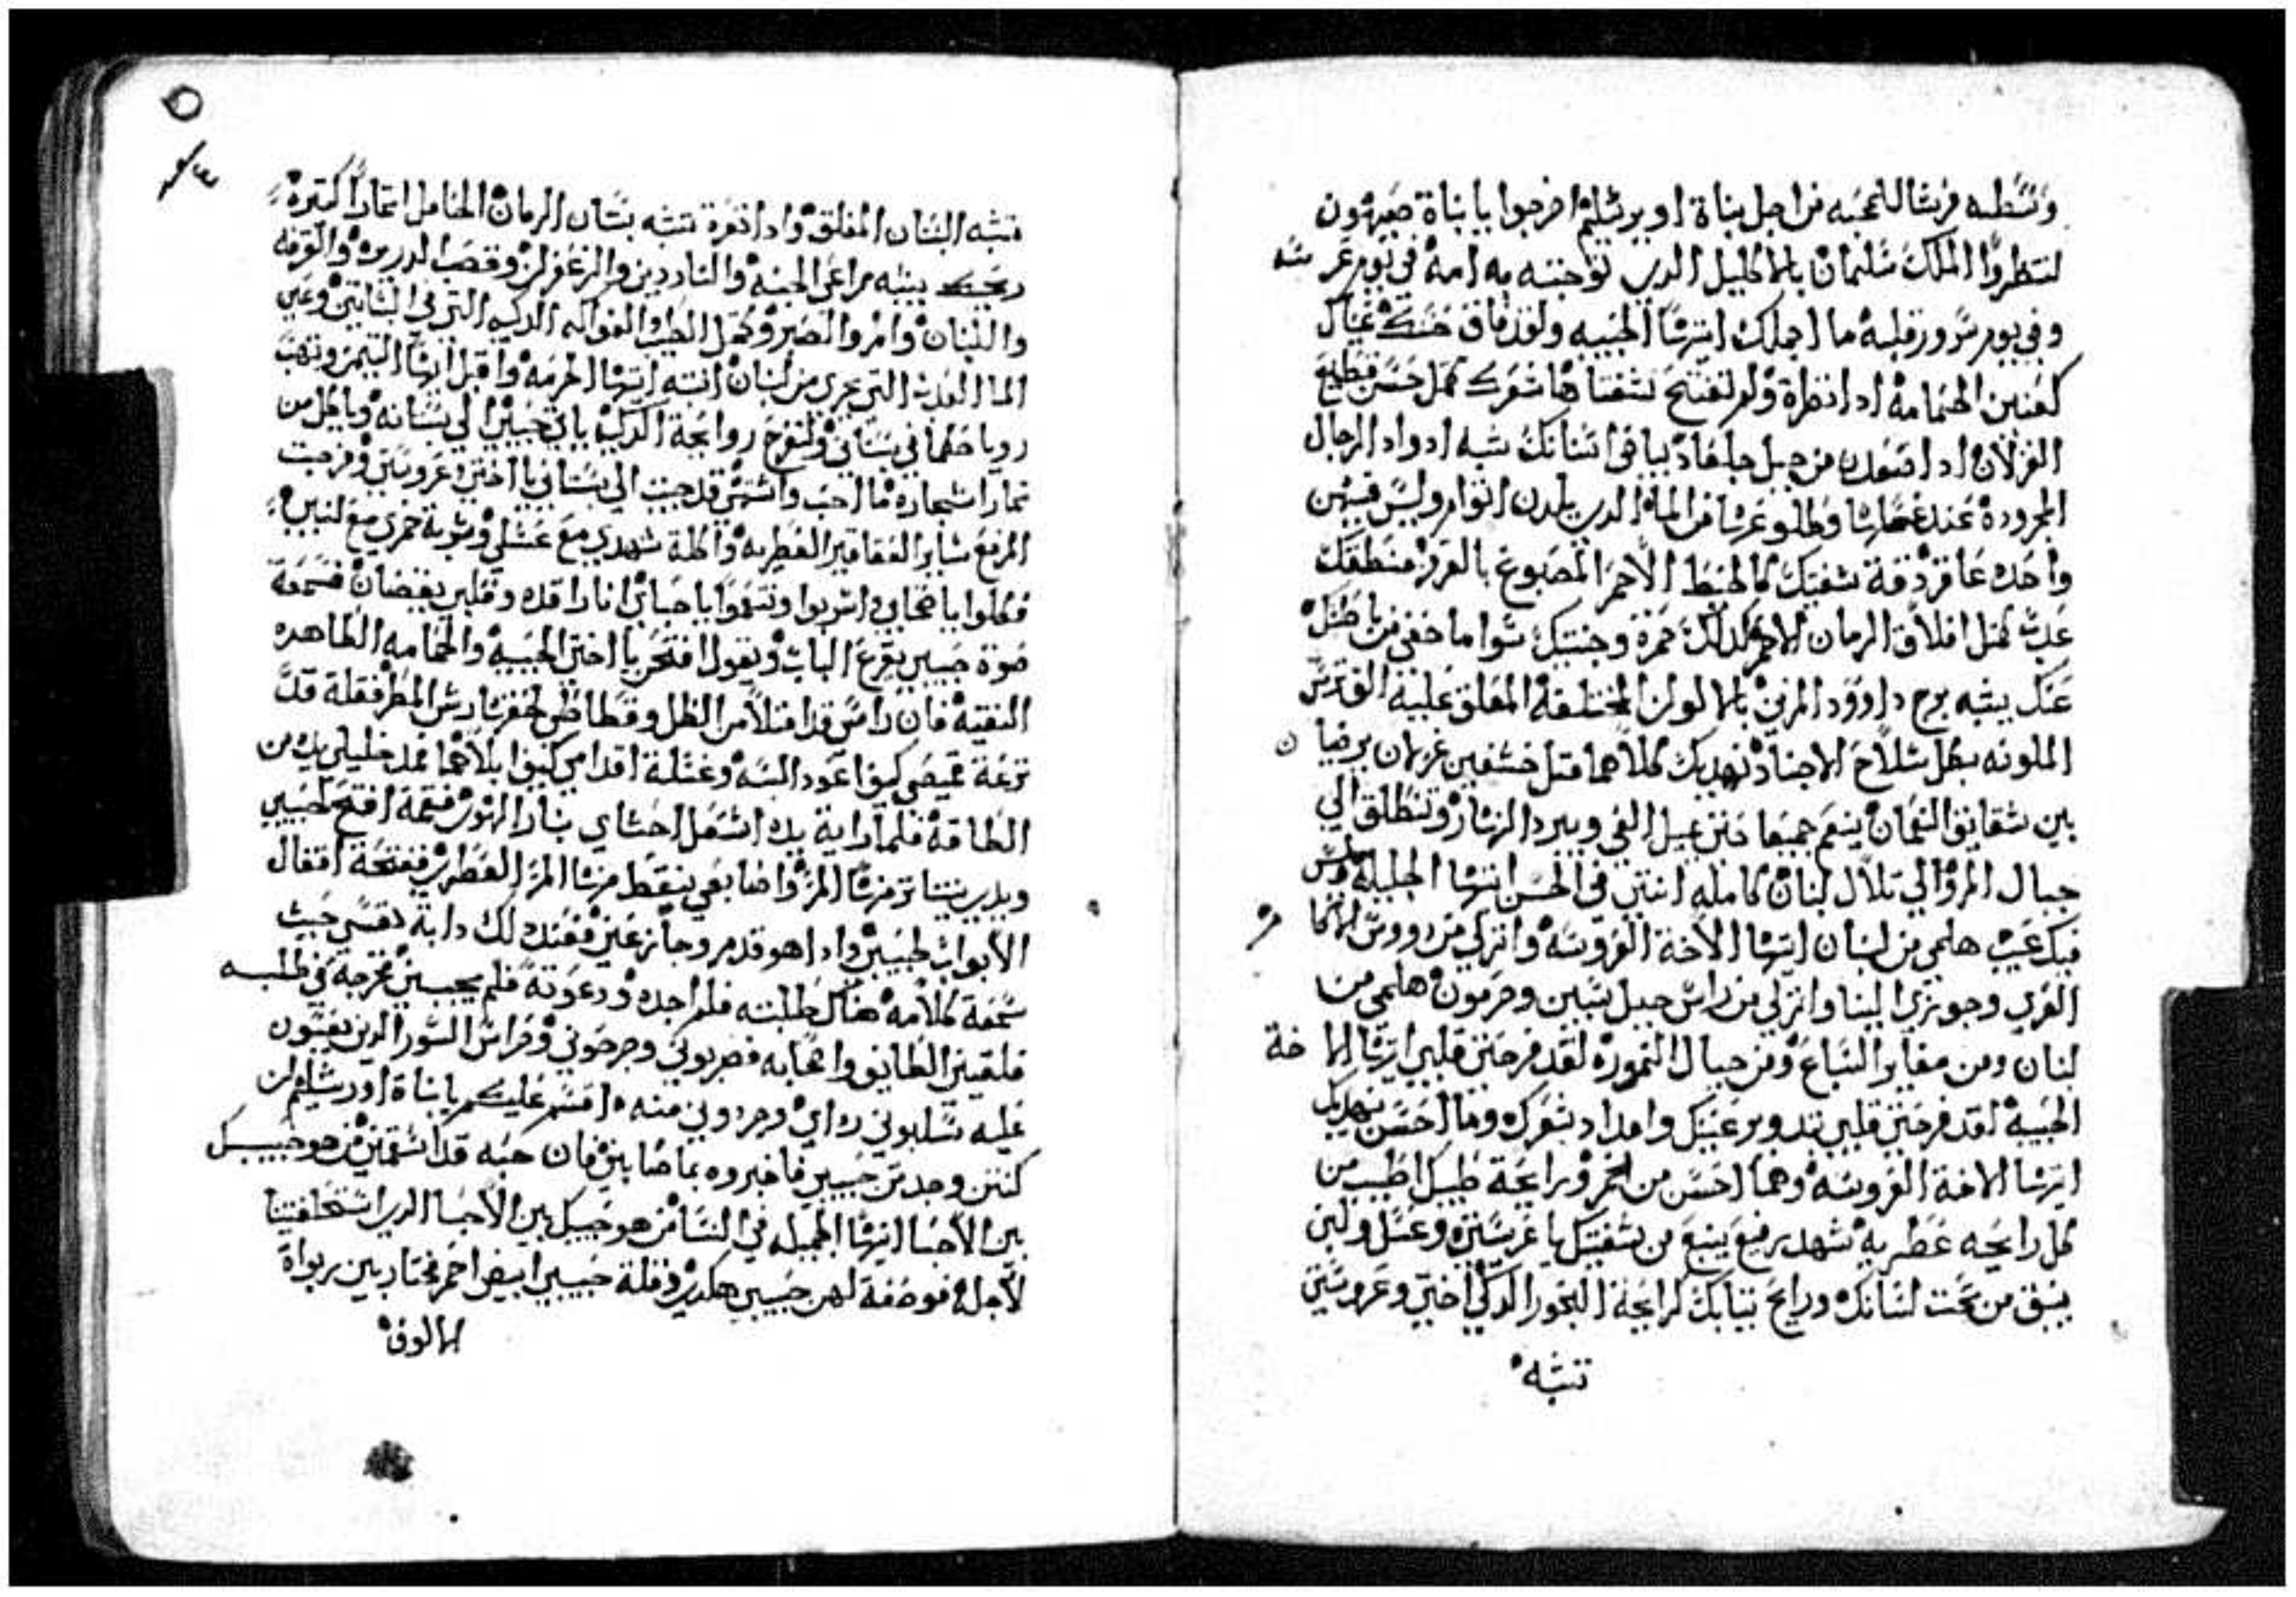 وسطه فرشا للمحبه من اجل بناة اويرشليم اخرجوا يا بناة صهيون
لتنظروا الملك سليمان بالاكليل الدي توجته به امه في يوم عرسه
وفي يوم سرور قلبه ما اجملك ايتها الحبيبه ولقد فاق حسنك عيناك
كعينين الحمامه ادا نظراة ولم تفتح شفتاها شعرك كمثل حسن قطيع
الغزلان ادا صعدن من جبل جلعاد بياض اسنانك شبه ادواد الرجال
المجروده عند وطلوعها من الماء الدي يلدن اتوام وليس فيهن
واحده عاقر دقة شفتيك كالخيط الاحمر المصبوغ بالقرمز منطقك
عدب كمثل افلاق الرمان الاحمر كدلك حمرة وجنتيك سوا ما خفي من باطنك
عنك يشبه برج داوود المزين بالالوان المختلفة المعلق عليه الف ترس
الملونه بكل سلاح الاجناد نهديك كلاهما مثل خشفين غزلان يرضيان
بين شقايق النعمان ينعم جميعا حتى يميل الفي ويبرد النهار وتنطلق الي
جبال المر والي تلال لبنان كامله انتي في الحسن ايتها الجليله وليس
فيك عيب هلمي من لبنان ايتها الاخة العروسه وانزلي من رووس الاكام
القري وجوزي الينا وانزلي من راس جبل سنين وحرمون هلمي من
لبنان ومن مغاير السباع ومن جبال النموره لقد فرحتي قلبي ايتها الاخة
الحبيبه لقد فرحتي قلبي تدوير عنيك وامداد شعرك وما احسن نهديك
ايتها الاخة العروسه وهما احسن من الخمر ورايحة طيبك اطيب من
كل رايحه عطريه شهد رفيع ينبع من شفتيك يا عريستي وعسل ولبن
يسبق من تحت لسانك ورايح تيابك كرايحة البخور الدكي اختي وعروستي
تشبه
٥
تشبه البستان المغلق وادا نظرة تشبه بستان الرمان الحامل اتمارا كتيره
ريحك يشبه مراعي الجنه والناردين والزعفران وقصب الدريره والقرفه
واللبنان وامر والصبر وكمل الطيب والفواكه الدكيه التي في البساتين وعين
الما العدب التي تجري من لبنان انتبه ايتها الجرمه واقبل ايها التيمن وتهب
رويا في بستاني ولتفوح روايحة الدكيه ياتي حبيبي الي بستانه وياكل من
تمار اشجاره ما احب واشتهي قد جيت الي بستاني يا اختي وعروستي وفرحت
المر مع ساير العقاقير العطريه واكلة شهدي مع عسلي وشربة خمري مع لبني
فكلوا يا اصحابي واشربوا وتنعموا يا حبايبي انا راقده وقلبي يقضان فسمعة
صوة حبيبي يقرع الباب ويقول افتحي يا اختي الحبيبه والحمامه الطاهره
النقيه فان راسي قد امتلا من الظل وقطاطي من رش المطر فقلة قد
نزعة قميصي كيف اعود البسه وغسلة اقدامي كيف ابلاهما فمد خليلي يده من
الطاقه فلما راية يده اشتعل احشاي بنار الهوي فقمة افتح لحبيبي
ويدي يتناتر منها المر واصابعي ينقط منها المر العطري ففتحة اقفال
الابواب لحبيبي وادا هو قد مر وجاز عني فعند دلك دابة نفسي حيت
سمعة كلامه هناك طلبته فلم اجده ودعوته فلم يجيبني فخرجه في طلبه
فلقيني الطايف واصحابه فضربوني وجرحوني وحراس السور الدين يعبتون
عليه سلبوني رداي وجردوني منه اقسم عليكم يا بناة اورشليم ان
كنتن وجدتن حبيبي فاخبروه بما صابني فان حبه قد اسقمني من هو حبيبك
بين الاحبا ايتها الجميله في النسا من هو حبيبك بين الاحبا الدي استحلفتينا
لاجله فوصفة لهن حبيبي هكدي وقلة حبيبي ابيض احمر مختار بين ربواة
الالوف